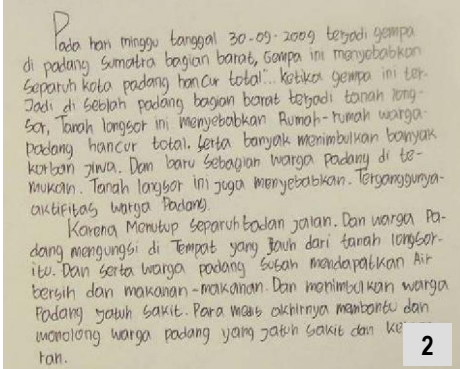 Pada hari minggu tanggal 30-09-2009 terjadi gempa
di padang Sumatra bagian barat, Gempa ini menyebabkan
separuh kota padang hancur total... ketika gempa ini ter-
Jadi di seblah padang bagian barat terjadi tanah long-
sor, Tanah longsor ini menyebabkan Rumah-rumah warga-
padang hancur total. serta banyak menimbulkan banyak
korban jiwa. Dan baru sebagian warga Padang di te-
mukan. Tanah longsor ini juga menyebabkan. Terganggunya-
aktifitas warga Padang.
Karena Menutup separuh badan jalan. Dan warga Pa-
dang mengungsi di Tempat yang Jauh dari tanah longsor-
itu. Dan serta warga padang susah mendapatkan Air
bersih dan makanan-makanan. Dan menimbulkan warga
Padang jatuh sakit. Para akhirnya membantu dan
menolong warga padang yang jatuh sakit dan
ran.
2